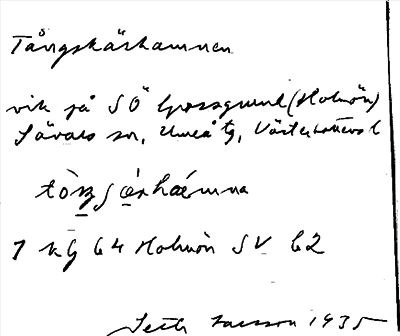 Tångskärhamnen
vik på SÖ Grossgrund (Holmön)
Sävars sn, Umeå tg, Västerbottens l
1 kg 64 Holmön SV b2
Seth 1935